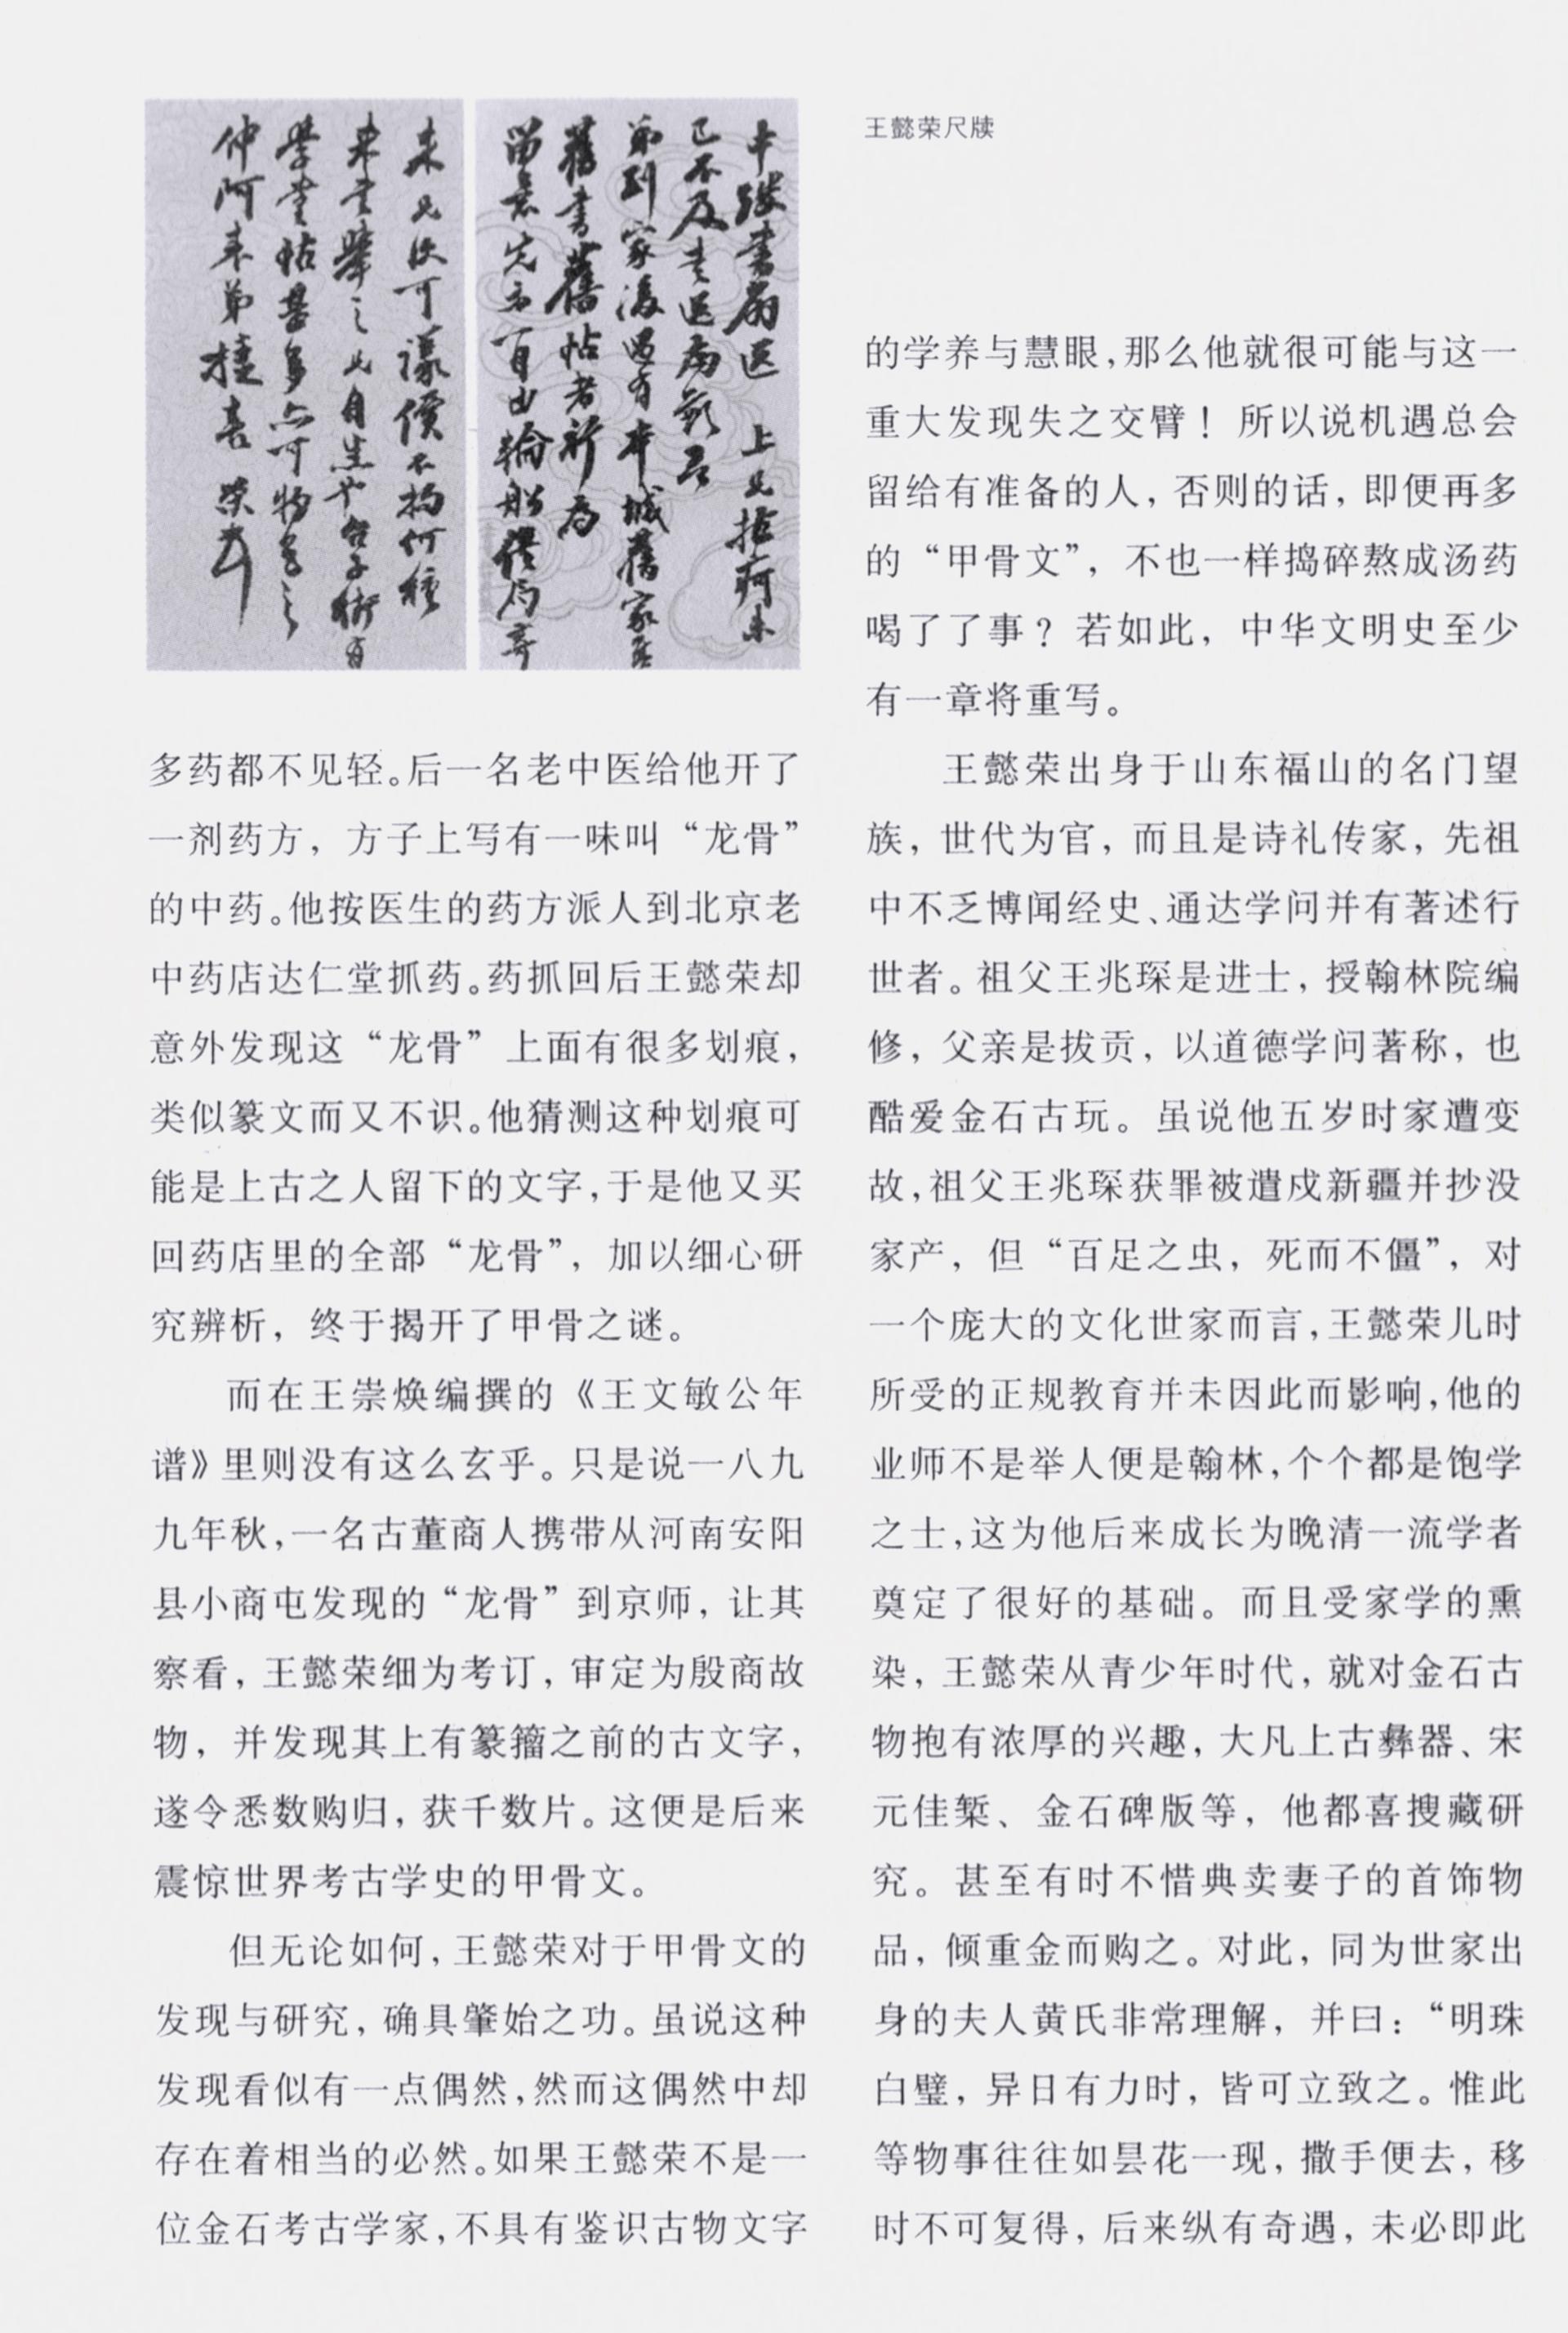 王懿荣尺牍
多药都不见轻。后一名老中医给他开了
一剂药方，方子上写有一味叫“龙骨”
的中药。他按医生的药方派人到北京老
中药店达仁堂抓药。药抓回后王懿荣却
意外发现这“龙骨”上面有很多划痕，
类似篆文而又不识。他猜测这种划痕可
能是上古之人留下的文字，于是他又买
回药店里的全部“龙骨”，加以细心研
究辨析，终于揭开了甲骨之谜。
而在王崇焕编撰的《王文敏公年
谱》里则没有这么玄乎。只是说一八九
九年秋，一名古董商人携带从河南安阳
县小商屯发现的“龙骨”到京师，让其
察看，王懿荣细为考订，审定为殷商故
物，并发现其上有篆籀之前的古文字，
遂令悉数购归，获千数片。这便是后来
震惊世界考古学史的甲骨文。
但无论如何，王懿荣对于甲骨文的
发现与研究，确具肇始之功。虽说这种
发现看似有一点偶然，然而这偶然中却
存在着相当的必然。如果王懿荣不是一
位金石考古学家，不具有鉴识古物文字
的学养与慧眼，那么他就很可能与这一
重大发现失之交臂！所以说机遇总会
留给有准备的人，否则的话，即便再多
的“甲骨文”，不也一样捣碎熬成汤药
喝了了事？若如此，中华文明史至少
有一章将重写。
王懿荣出身于山东福山的名门望
族，世代为官，而且是诗礼传家，先祖
中不乏博闻经史、通达学问并有著述行
世者。祖父王兆琛是进士，授翰林院编
修，父亲是拔贡，以道德学问著称，也
酷爱金石古玩。虽说他五岁时家遭变
故，祖父王兆琛获罪被遣戍新疆并抄没
家产，但“百足之虫，死而不僵”，对
一个庞大的文化世家而言，王懿荣儿时
所受的正规教育并未因此而影响，他的
业师不是举人便是翰林，个个都是饱学
之士，这为他后来成长为晚清一流学者
奠定了很好的基础。而且受家学的熏
染，王懿荣从青少年时代，就对金石古
物抱有浓厚的兴趣，大凡上古彝器、宋
元佳椠、金石碑版等，他都喜搜藏研
究。甚至有时不惜典卖妻子的首饰物
品，倾重金而购之。对此，同为世家出
身的夫人黄氏非常理解，并曰：“明珠
白璧，异日有力时，皆可立致之。惟此
等物事往往如昙花一现，撒手便去，移
时不可复得，后来纵有奇遇，未必即此